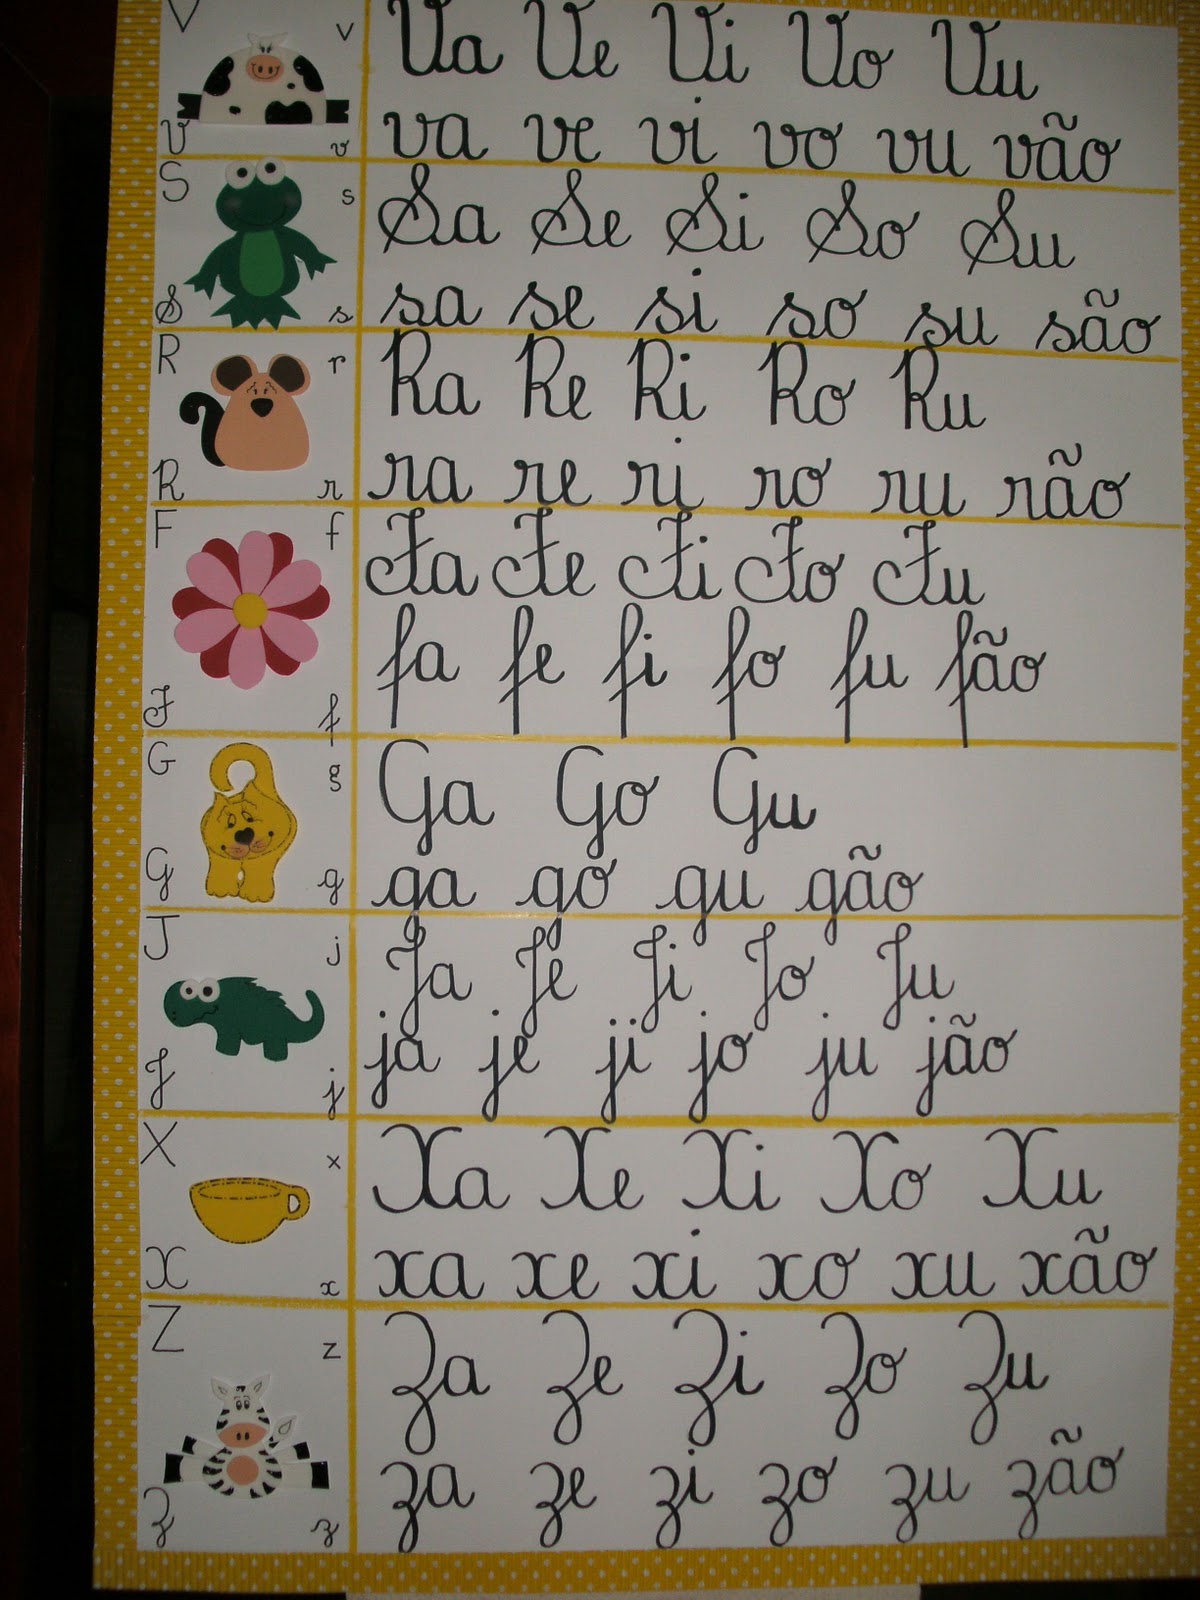 V v
Va Ve Vi Vo Vu
V v
va ve vi vo vu vão
S s
Sa Se Si So Su
S s
sa se si so su são
R r
Ra Re Ri Ro Ru
R r
ra re ri ro ru rão
F f
Fa Fe Fi Fo Fu
fa fe fi fo fu fão
F f
G g
Ga Go Gu
G g
ga go gu gão
J j
Ja Je Ji Jo Ju
J j
ja je ji jo ju jão
X x
Xa Xe Xi Xo Xu
X x
xa xe xi xo xu xão
Z z
Za Ze Zi Zo Zu
za ze zi zo zu zão
Z z